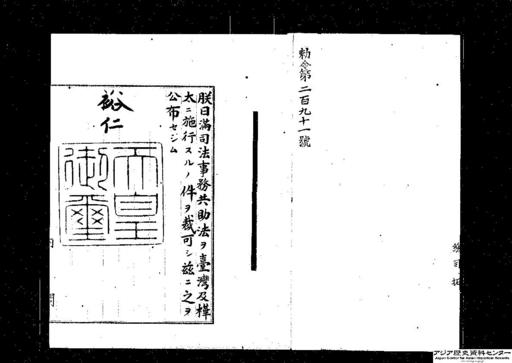 勅令第二百九十一號
朕日滿司法事務共助法ヲ臺灣及樺
太ニ施行スルノ件ヲ裁可シ玆ニ之ヲ
公布セシム
裕仁
天皇
御璽
アジア歴史資料センター
Japan Center for Asian Historical Records